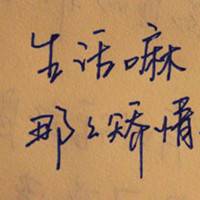 生活嘛
那么矫情.